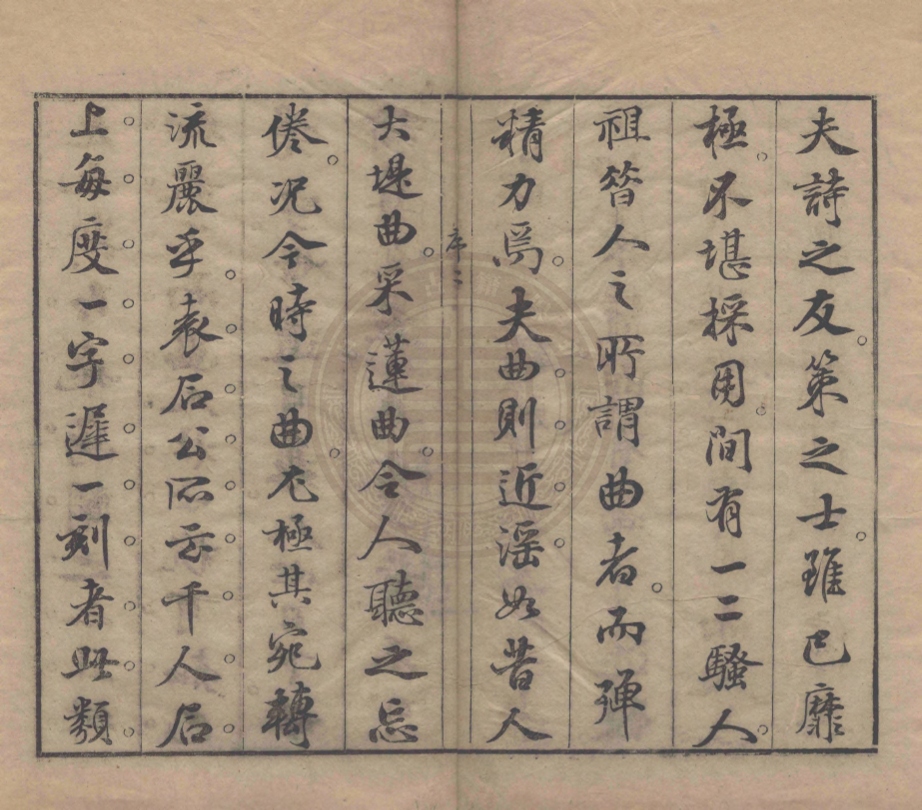 夫詩之友策之士雖已靡
極不堪採用間有一二騷人
祖昔人之所謂曲者而殫
精力焉夫曲則近謡如昔人
序二
大堤曲采蓮曲令人聽之忘
倦况今時之曲尤極其宛轉
流麗乎袁石公所云千人石
上每度一字遲一刻者此類